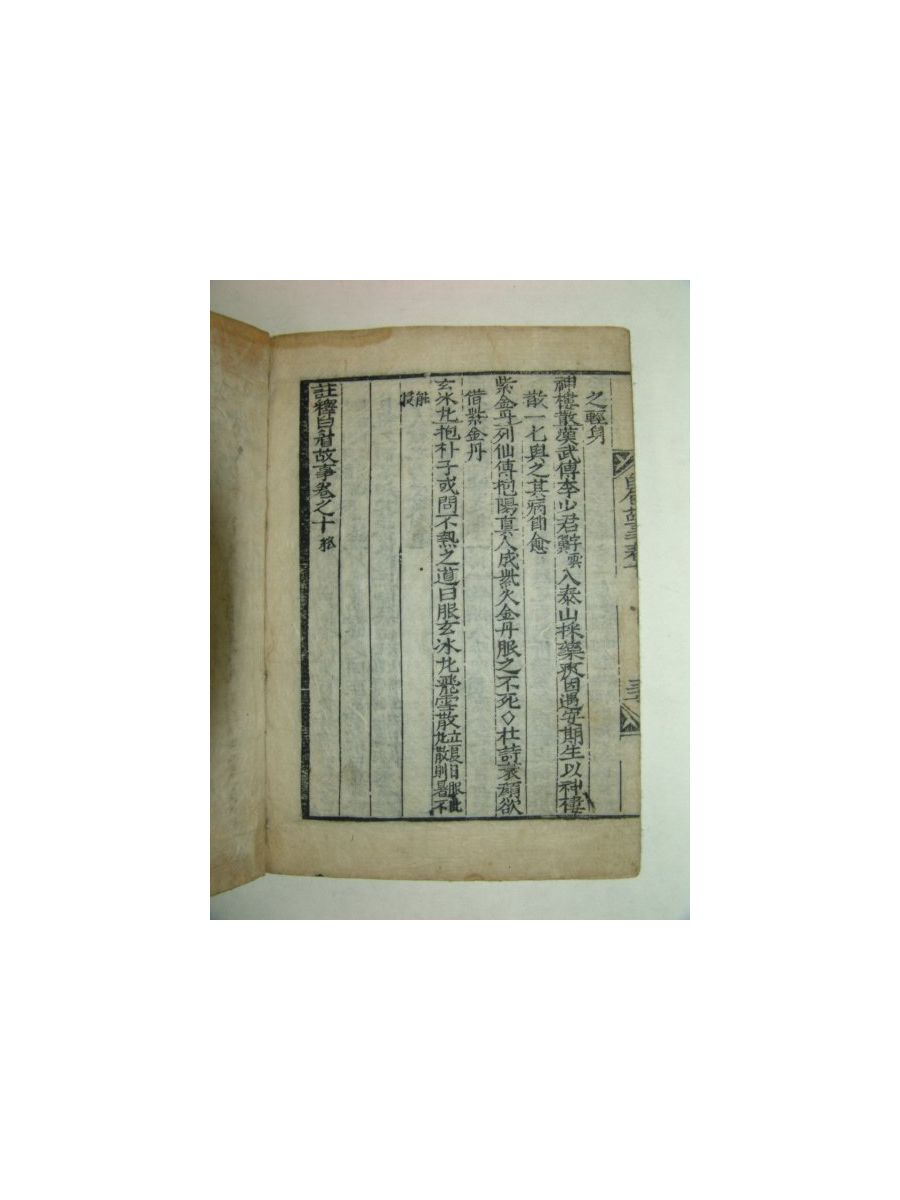 之輕身
神樓散漢武傳李少君字雲入泰山採藥疾困遇安期生以神樓
散一匕與之其病卽愈
紫金丹列仙傳抱陽真人成紫火金丹服之不死◇杜詩衰顔欲
借紫金丹
玄冰丸抱朴子或問不熱之道曰服玄冰丸飛雪散立夏日服此丸散則暑不
能侵
註釋白眉故事卷之十終